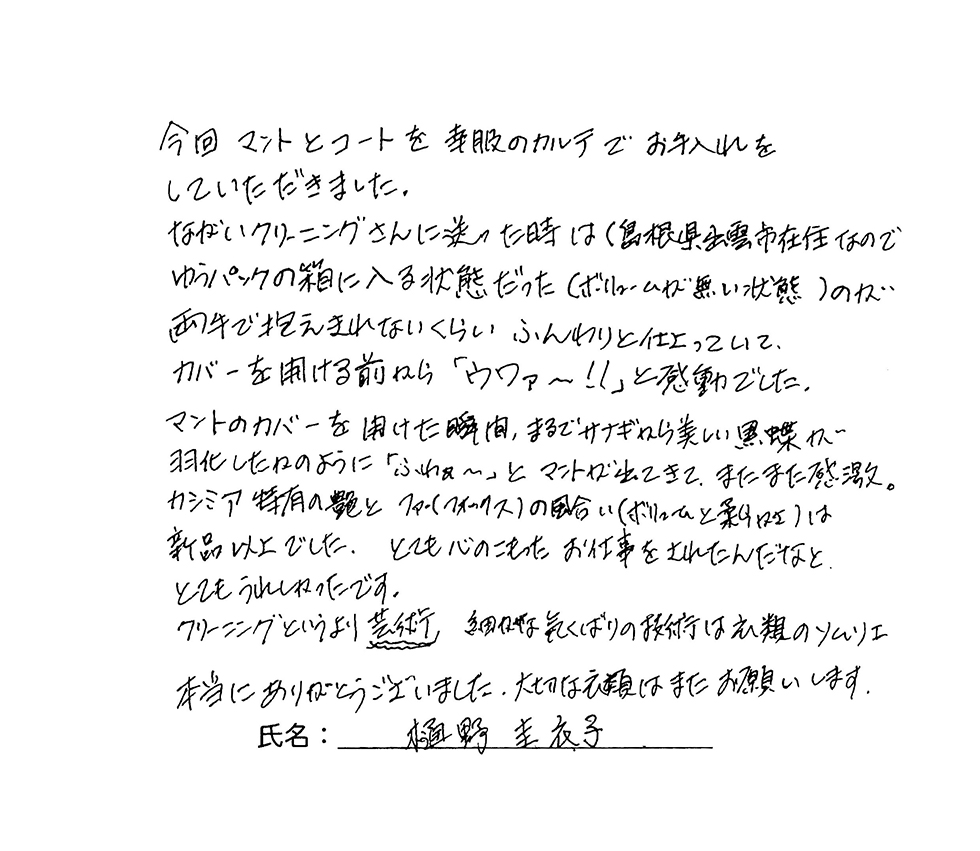 今回 マントとコートを 幸服のカルテで お手入れを
していただきました。
ながいクリーニングさんに送った時は(島根県出雲市在住なので
ゆうパックの箱に入る状態だった(ボリュームが無い状態)のが
両手で抱えきれないくらい ふんわりと仕上っていて、
カバーを開ける前から「ウワァ〜!!」と感動でした。
マントのカバーを開けた瞬間、まるでサナギから美しい黒蝶が
羽化したかのように「ふわぁ〜」とマントが出てきて、またまた感激。
カシミア特有の艶と ファー(フォックス)の風合い(ボリュームと柔らかさ)は
新品以上でした。 とても心のこもった お仕事をされたんだなと
とてもうれしかったです。
クリーニングというより芸術 細やかな気くばりの技術は衣類のソムリエ
本当にありがとうございました。大切な衣類はまたお願いします。
氏名: 樋野 圭衣子